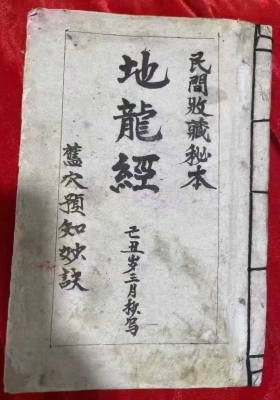 民間收藏秘本
地龍經
己丑岁三月抄写
舊穴預知妙訣